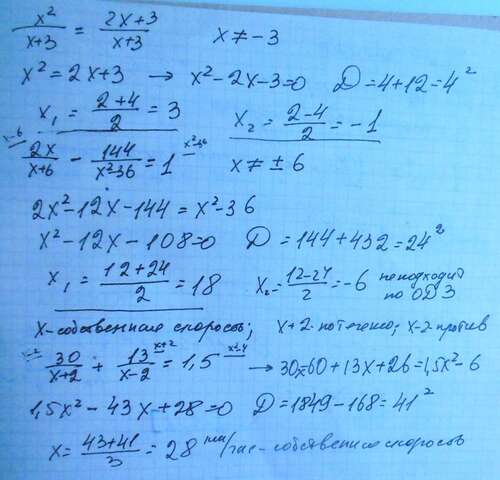 x²/(x+3) = (2x+3)/(x+3)   x ≠ -3
x² = 2x+3 → x²-2x-3=0   D = 4+12 = 4²
x₁ = (2+4)/2 = 3   x₂ = (2-4)/2 = -1
x-6   x²-36
2x/(x+6) - 144/(x²-36) = 1   x ≠ ± 6
2x²-12x-144 = x²-36
x²-12x-108=0   D = 144+432 = 24²
x₁ = (12+24)/2 = 18   x₂ = (12-24)/2 = -6 не подходит по ОДЗ
x-собственная скорость; x+2 по течению; x-2 против
x-2   x+2   x²-4
30/(x+2) + 13/(x-2) = 1,5 → 30x-60+13x+26=1,5x²-6
1,5x²-43x+28=0   D=1849-168=41²
x = (43+41)/3 = 28 км/час - собственная скорость